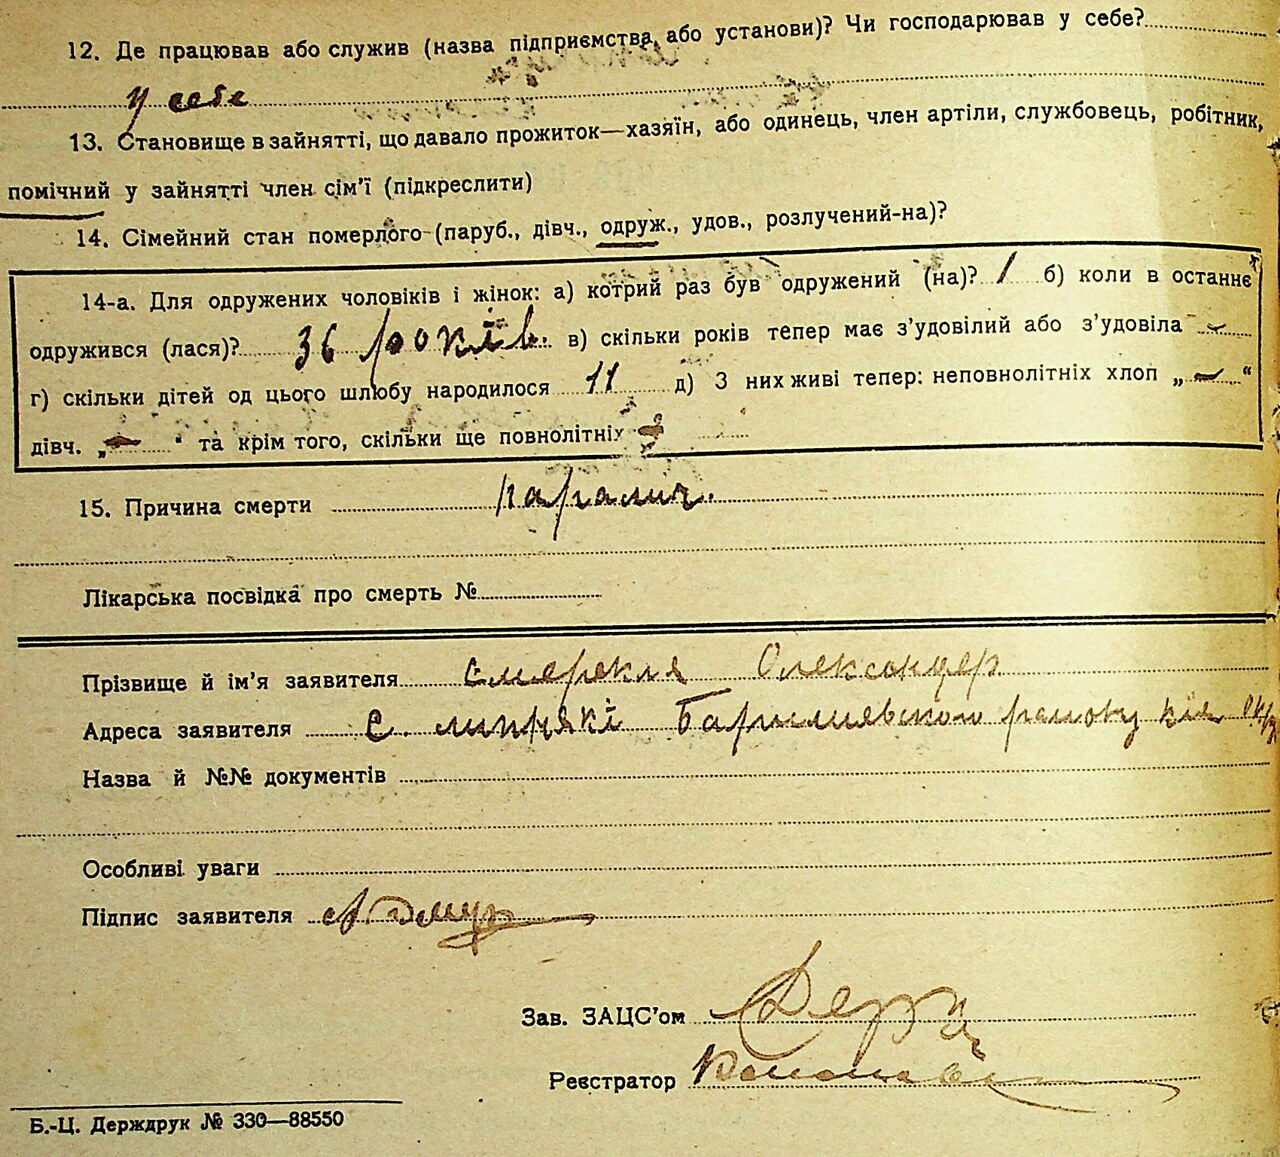 12. Де працював або служив (назва підприємства, або установи)? Чи господарював у себе?
у себе
13. Становище в зайнятті, що давало прожиток—хазяїн, або одинець, член артіли, службовець, робітник,
помічний у зайнятті член сім'ї (підкреслити)
14. Сімейний стан померлого (паруб., дівч., одруж., удов., розлучений-на)?
14-а. Для одружених чоловіків і жінок: а) котрий раз був одружений (на)? 1 б) коли в останнє
одружився (лася)? 36 років. в) скільки років тепер має з'удовілий або з'удовіла —
г) скільки дітей од цього шлюбу народилося 11 д) З них живі тепер: неповнолітніх хлоп „—“
дівч. „—" та крім того, скільки ще повнолітніх
15. Причина смерти параліч.
Лікарська посвідка про смерть №
Прізвище й ім'я заявителя Смерекля Олександер
Адреса заявителя с. Липнякі району Київ
Назва й №№ документів
Особливі уваги
Підпис заявителя
Зав. ЗАЦС'ом
Реєстратор
Б.-Ц. Держдрук № 330—88550